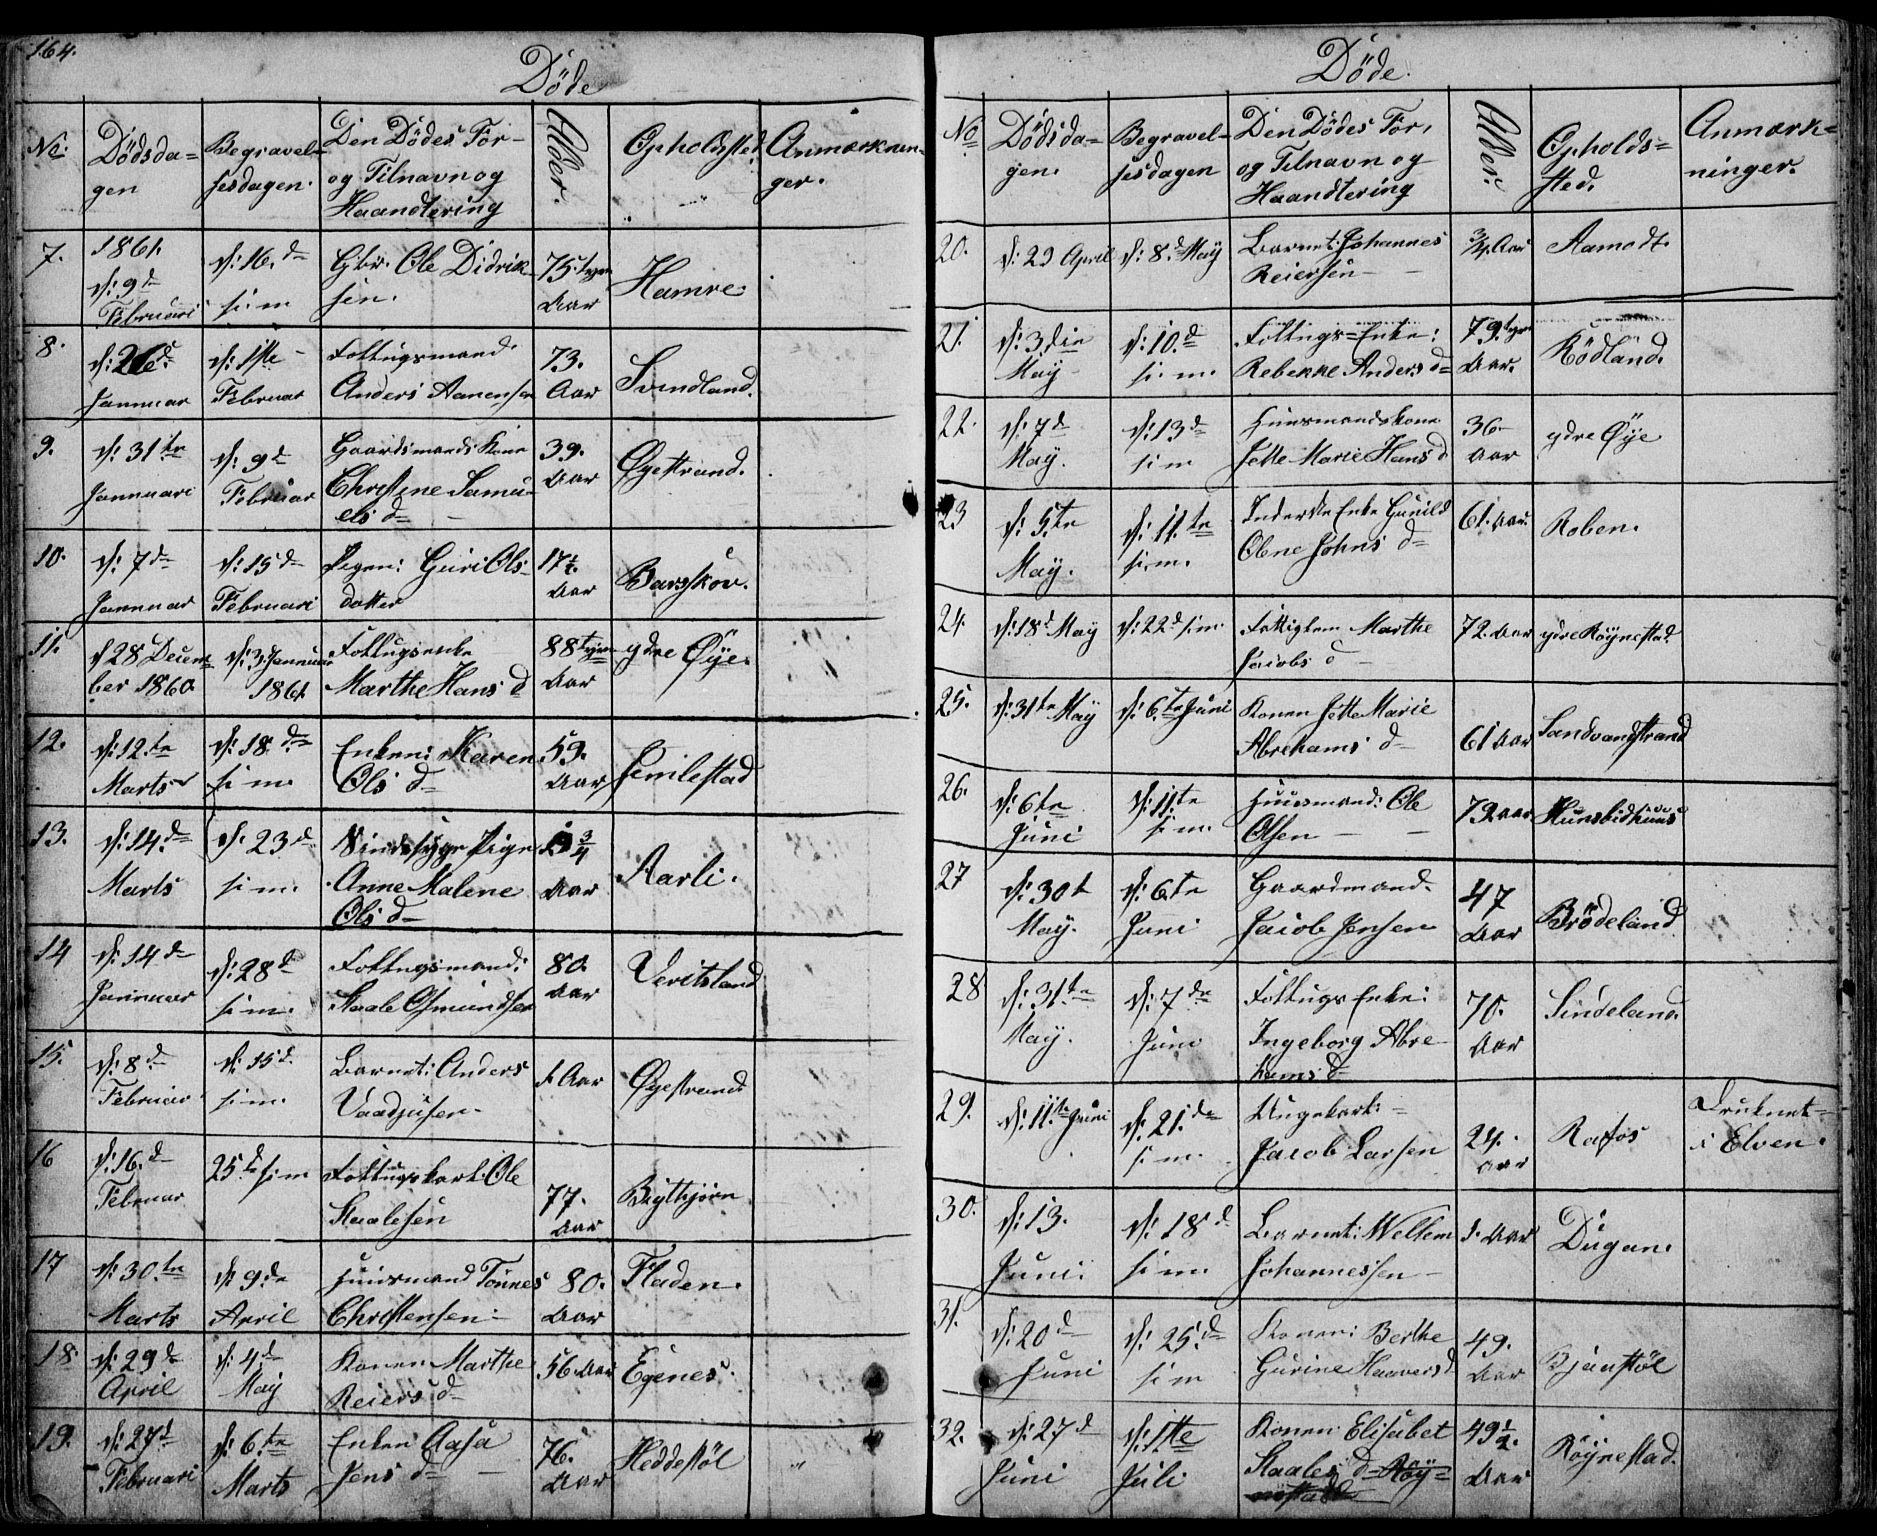 164.
Döde
No:
Dödsda=
gen
Begravel=
sesdagen.
Den Dödes För-
og Tilnavn og
Haandtering
Alder.
Opholdsted.
Anmærknin-
ger.
7.
1861.
d: 9d
Februari
d: 16.d
s: m
Gbr. Ole Didrik-
sen.
75.
Aar
Hamre.
8.
Januar
d: 1ste
Februar
Folkugsmand.
Anders Aanensen
73.
Aar
Svindland.
9.
d: 31te
Januari
d: 9d
Februar
Gaardmands Kone
Christine Samu-
els d-
39.
Aar
Øyestrand.
10.
d: 7de
Januar
d: 15d
Februari
Pigen: Guri Ols-
datter
17½
Aar
Barskov.
11.
d 28 Decem
ber 1860.
d: 3 Januar
1861
Marthe Hans d
88
Aar
ydre Øÿe.
12.
d: 12.te
Marts
d: 18.d
s: m.
Enken: Karen
Ols d-
59.
Aar
Jemlestad
13.
d: 14.de
Marts
d: 23d
s: m.
Sindssyge Pige
Anne Malene
Ols d-
¾
Aar
Aarli.
14
d: 14d
Januar
d: 28d
s: m.
Staale Osmundsen
80.
Aar
Veritsland
15.
d: 8d
Februar
d: 15d.
s: m.
Barnet: Anders
Vaadjusen.
1. Aar
Øyestrand
16
d: 16.d
Februar
25d s: m
Ole
Staalesen
77.
Aar
17
d: 30.te
Marts
d: 9.de
April
Huusmand Tönnes
Christensen:
80.
Aar
Fladen.
18
d: 29d
April
d: 4.d
May
Konen Marthe
Reiers d-
56 Aar
Egenes.
19.
d: 27d
Februari
d: 6.te
Marts
Enken Aasa
Jens d-
76.
Aar
Heddestøl
"
Döde.
No
Dödsda=
gen.
Begravel=
sesdagen
Den Dödes För,
og Tilnavn og
Haandtering
Alder.
Opholds=
sted.
Anmærk=
ninger.
20.
d: 29 April
d: 8.d Maÿ
Barnet: Johannes
Reiersen
¾ Aar
Aamodt.
21.
d: 3die
May
d: 10.d
s: m.
Enke:
Rebekke Anders d-
79
Aar.
Rödland.
22.
d: 7d
May.
d: 13d
s: m
Huusmandskone
Jette Marie Hans d
36
Aar
ydre Øÿe
23
d: 5.te
May.
d: 11.te
s: m.
Inderste Enke Gunild
Oline Johns d-
61. Aar.
Roben.
24.
d: 18d May
d: 22d s: m
Fattiglem Marthe
Jacobs d
72. Aar
ydre Röynestad
25.
d: 31te Maÿ
d: 6.te Juni
Konen Jette Marie
Abrehams d-
61 Aar
Sandvandstrand
26.
d: 6te
Juni
d: 11.te
s: m.
Huusmand: Ole
Olsen
79 Aar
27
d: 30t
May.
d: 6.te
Juni
Gaardmand.
Jacob Jensen
47
Aar
Brödeland
28
d: 31.te
May.
d: 7de
Juni
Enke:
Ingeborg Abre
hams d-
70.
Aar
Sindeland.
29.
d: 11.te Juni
d: 21.de
s: m.
Ungekarl:
Jacob Larsen
24.
Aar
Rafos
Druknet
i Elven.
30.
d: 13.
Juni
d: 18d
s: m.
Barnet: Wellem
Johannessen
1. Aar
Dugan.
31.
d: 20d
Juni
d: 25.d
s: m
Konen: Berthe
Gurine Haavers d
49.
Aar
Bjaastöl
32.
d: 27d
Juni
d: 1ste
Juli
Konen Elisabet
Staales d- Röÿ=
nestad
49½.
Aar
Röÿnestad.